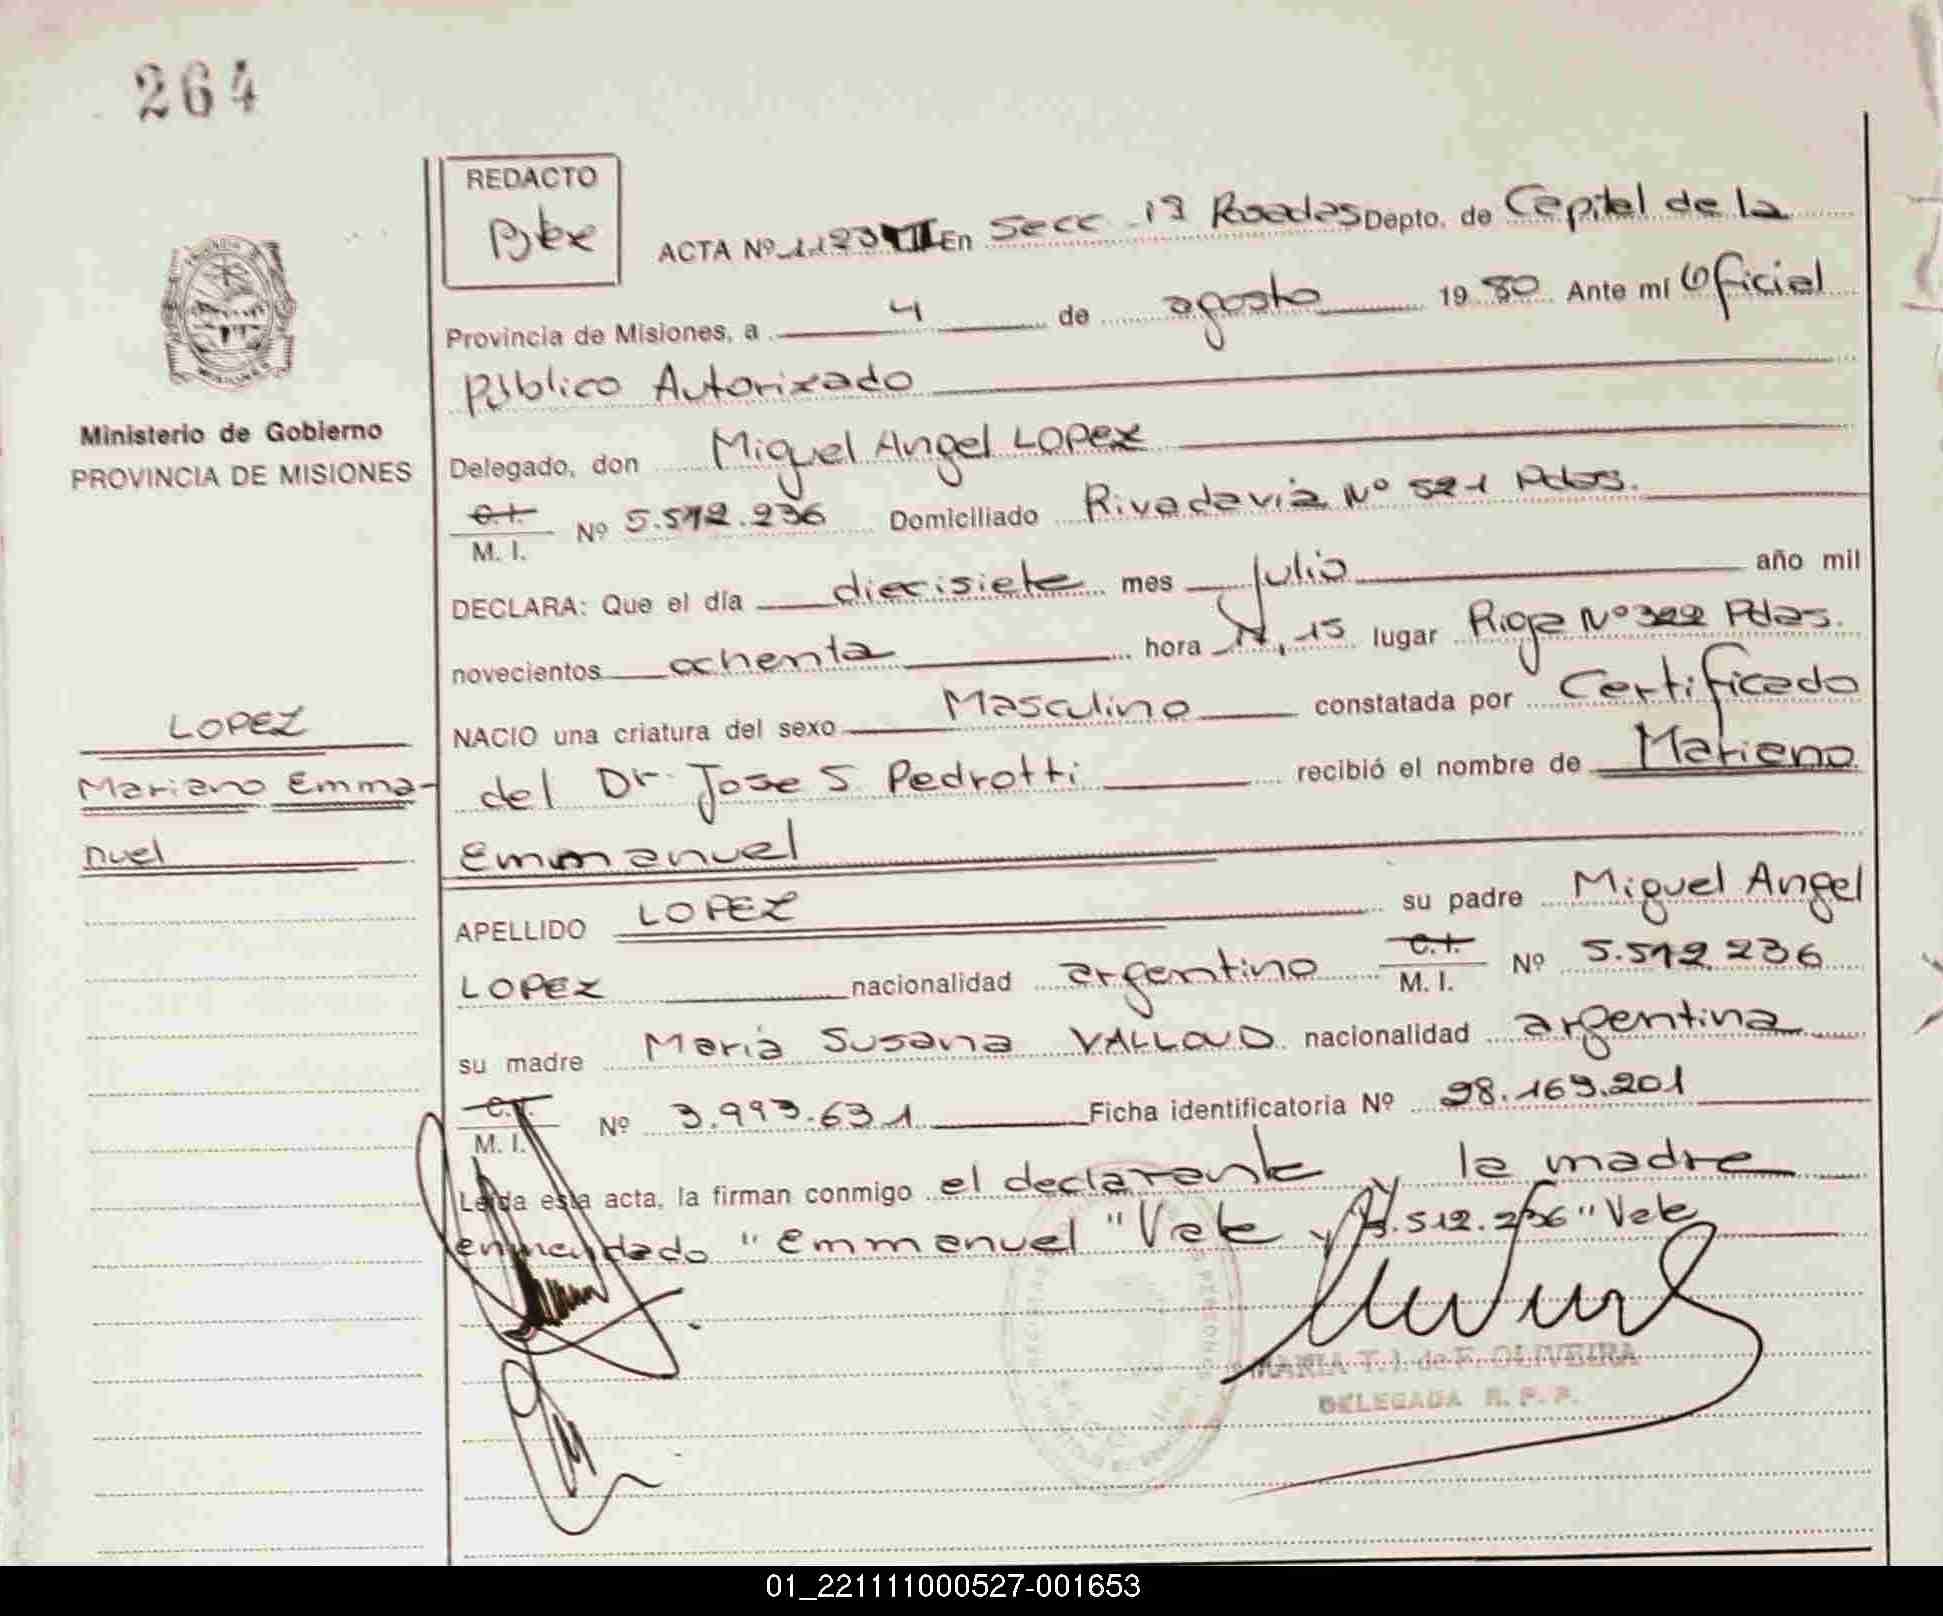 264
REDACTO
ACTA Nº 1123 III En Secc. 1ª Posadas Depto. de Capital de la
Provincia de Misiones, a 4 de agosto 1980 Ante mí Oficial
Público Autorizado
Ministerio de Gobierno
PROVINCIA DE MISIONES
Delegado, don Miguel Angel LOPEZ
C.I.
M. I. Nº 5.512.236 Domiciliado Rivadavia Nº 521 Pdas.
DECLARA: Que el día diecisiete mes julio año mil
novecientos ochenta hora 11,15 lugar Rioja Nº 322 Pdas.
NACIO una criatura del sexo Masculino constatada por Certificado
del Dr. Jose S. Pedrotti recibió el nombre de Mariano
Emmanuel
LOPEZ
Mariano Emma-
nuel
APELLIDO LOPEZ su padre Miguel Angel
LOPEZ nacionalidad argentino C.I. M. I. Nº 5.512.236
su madre Maria Susana VALLOUD nacionalidad argentina
C.I.
M. I. Nº 3.993.631 Ficha identificatoria Nº 28.169.201
Leída esta acta, la firman conmigo el declarante y la madre
enmendado "Emmanuel" Vale y "5.512.236" Vale
MARIA T. J. de F. OLIVEIRA
DELEGADA R. P. P.
01_221111000527-001653